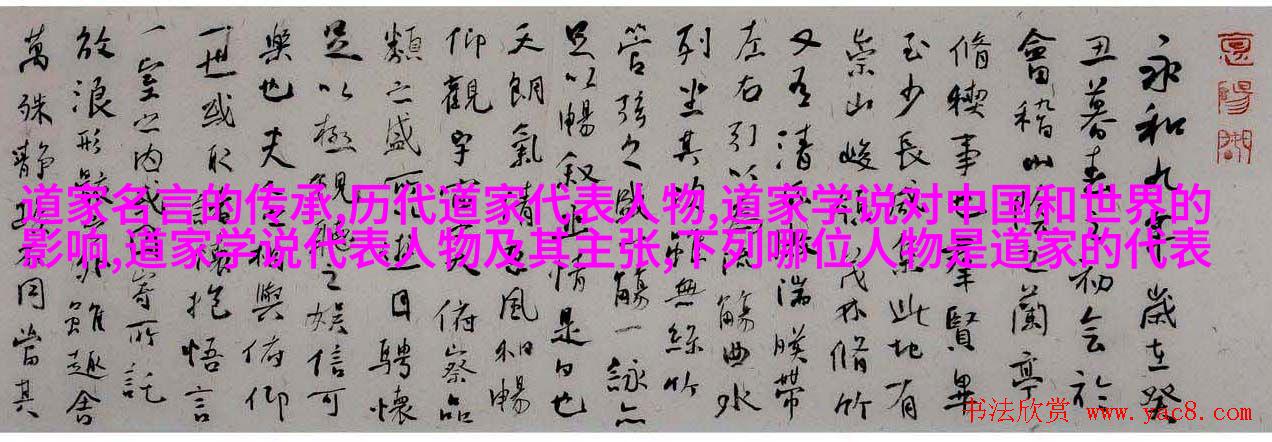 永和九年歲在癸
丑暮春之初会於
會稽山陰之蘭亭
脩稧事也羣賢畢
至少長咸集此地有
崇山峻領茂林脩竹
又有清流激湍暎帶
左右引以為流觴曲水
列坐其次雖無絲竹
管弦之盛一觴一詠亦
足以暢叙幽情是日也
天朗氣清惠風和暢
仰觀宇宙之大俯察品
類之盛所以遊目騁懷
足以極視聽之娱信可
樂也夫人之相與俯仰
一世或取諸懷抱悟言
一室之内或因寄所託
放浪形骸之外雖趣舍
萬殊静躁不同當其
道家名言的传承,历代道家代表人物,道家学说对中国和世界的
影响,道家学说代表人物及其主张,下列哪位人物是道家的代表
书法欣赏 www.yac8.com